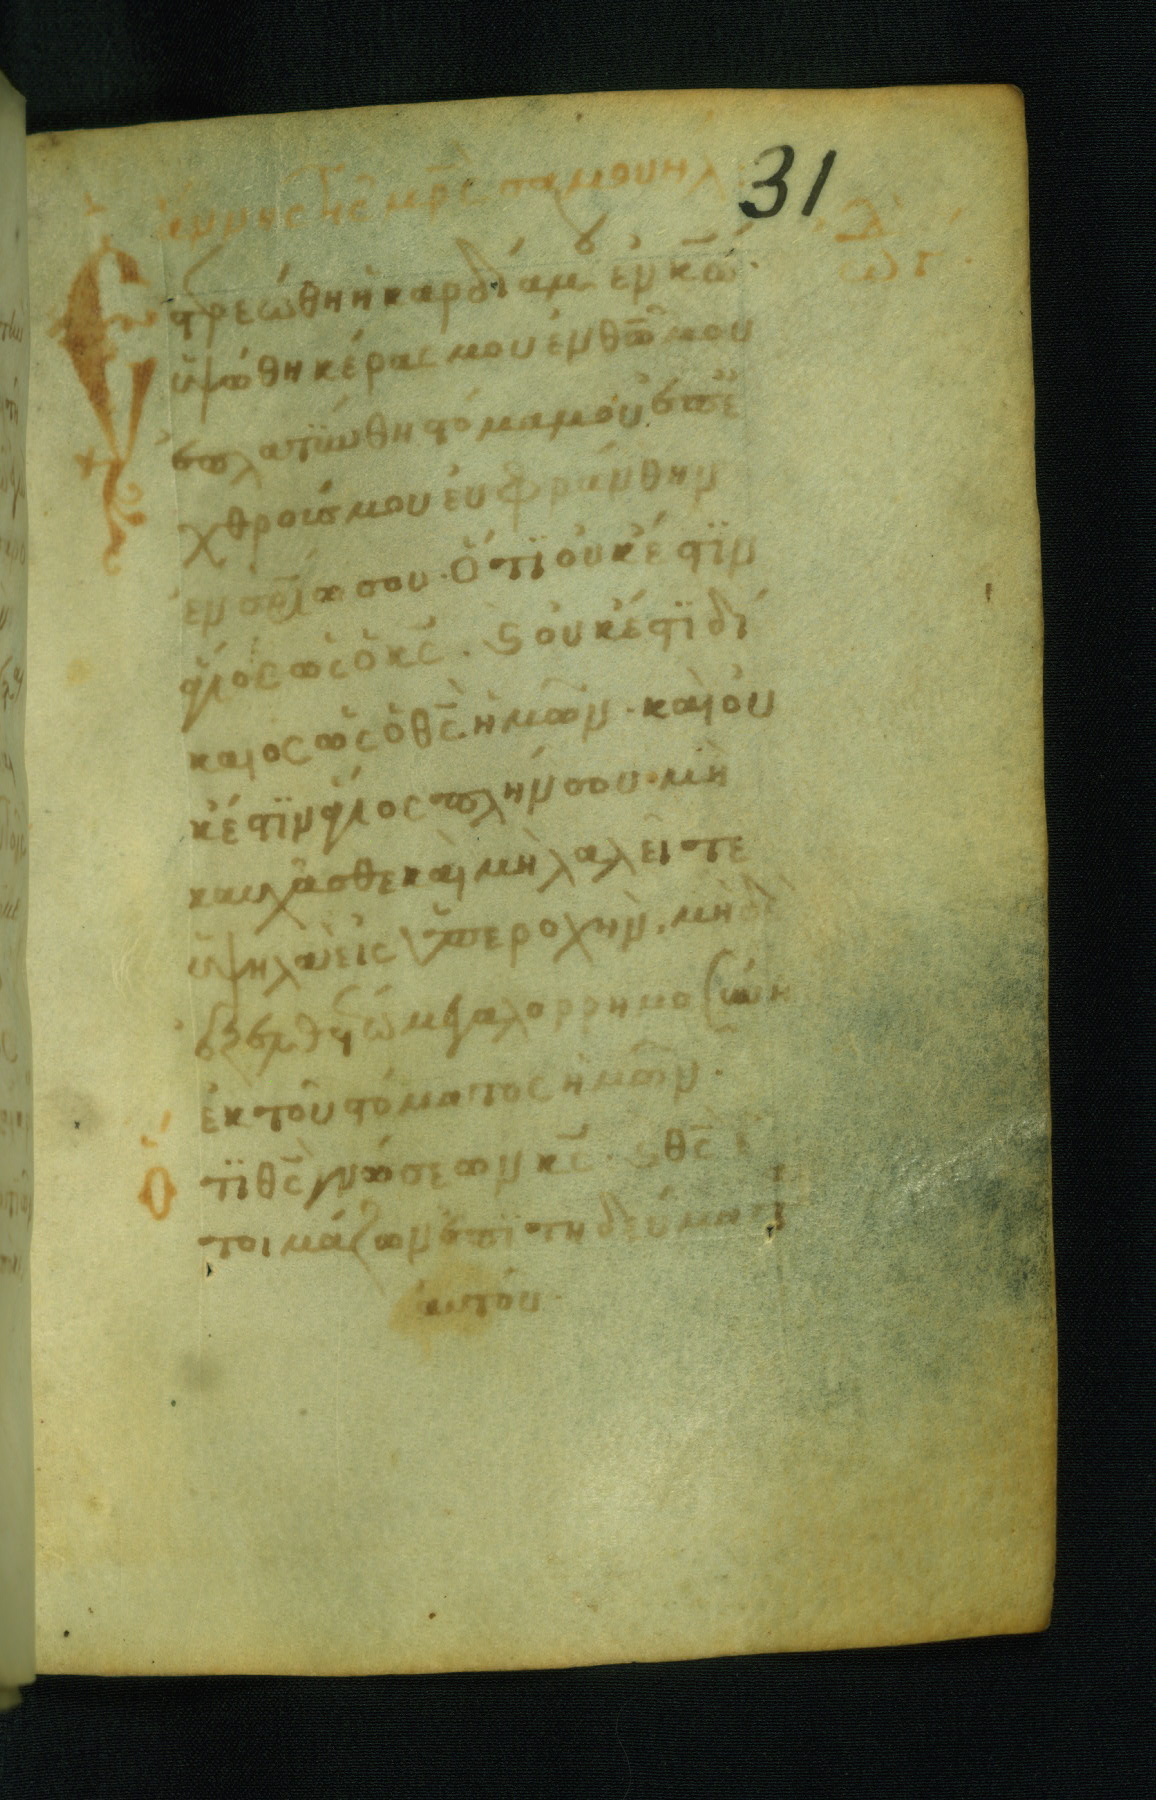 31
Ἄννης τῆς μρς Σαμουήλ
Ἐ
στρεώθη ἡ καρδία μου ἐν κω·
ὑψώθη κέρας μου ἐν θω μου
ἐπλατύνθη στόμα μου ἐπ ἐ
χθρούς μου εὐφράνθην
ἐν σρία σου· Ὅτι οὐκ ἔστιν
ἅγιος ὡς ὁ κς· κ οὐκ ἔστι δί
καιος ὡς ὁ θς ἡμῶν· καὶ οὐ
κ ἔστιν ἅγιος πλὴν σου· μὴ
καυχᾶσθε καὶ μὴ λαλεῖτε
ὑψηλὰ εἰς ὑπεροχήν· μηδὲ
ἐξελθέτω μεγαλορρημοσύνη
ἐκ τοῦ στόματος ἡμῶν·
Ὅ
τι θς γνώσεων κς· κ θς ἑ
τοιμάζων ἐπιτηδεύματα
αὐτοῦ·